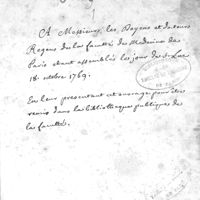 A Messieurs, les Doyens et docteurs
Regens de la faculté de Medecine de
Paris etant assemblés le jour de St Luc
18. octobre 1769.
En leur presentant cet ouvrage pour être
remis dans la bibliotheque publique de
la faculté.